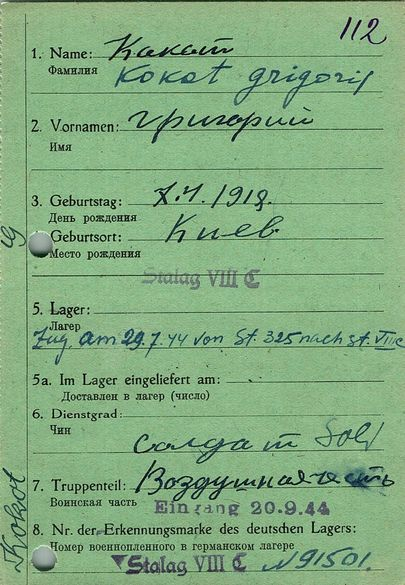 112
1. Name: Какот
Фамилия Kokot grigorij
2. Vornamen: григорий
Имя
3. Geburtstag: 7.4.1918.
День рождения
Geburtsort: Киев
Место рождения
Stalag VIII C
5. Lager:
Лагер
Zug. am 29.7.44 von St. 325 nach St. VIIIc
5a. Im Lager eingeliefert am:
Доставлен в лагер (число)
6. Dienstgrad:
Чин
солдат Sold
7. Truppenteil: Воздушная честь
Воинская часть
Eingang 20.9.44
8. Nr. der Erkennungsmarke des deutschen Lagers:
Номер военнопленного в германском лагере
Stalag VIII C N 91501.
Kokot